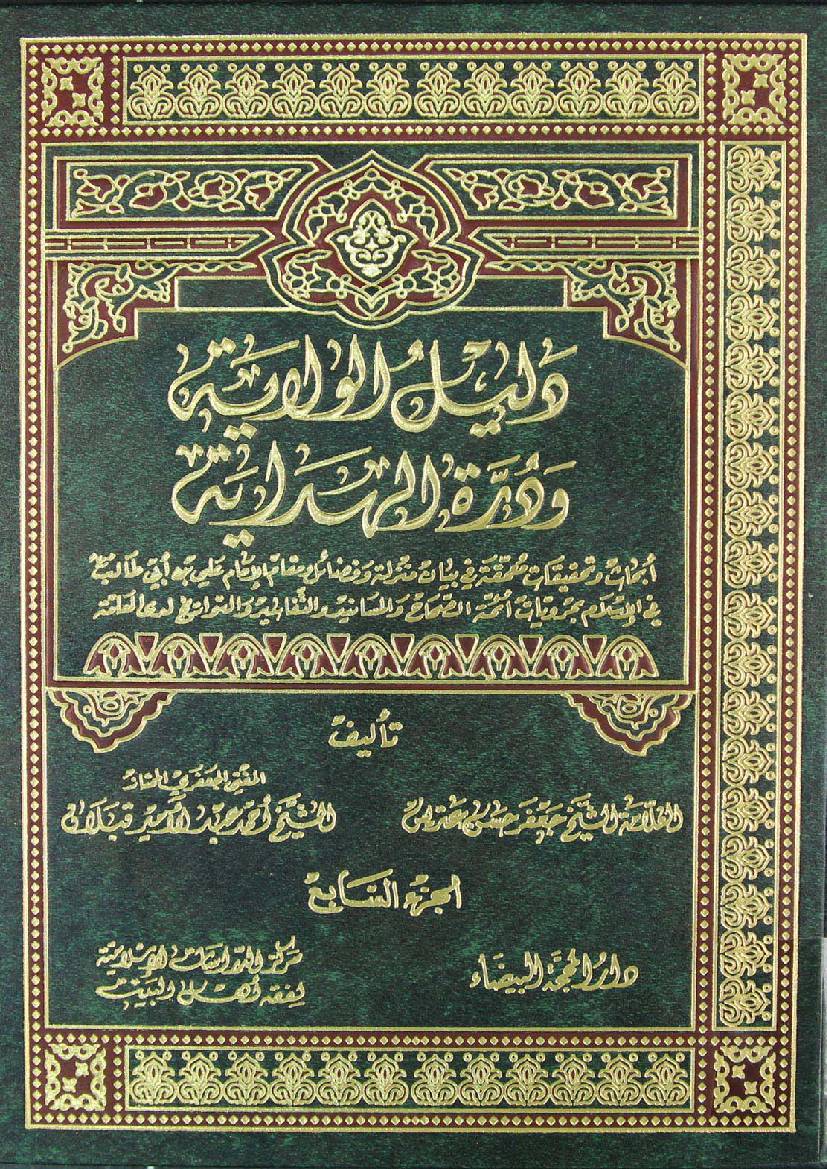 دَليلُ الولايَة
وَدُرَّة الهدايَة
أبحاث وتحقيقات محققة في بيان منزلة وفضائل ومقام الإمام علي بن أبي طالب
في الإسلام بمرويات أئمة الصحاح والمسانيد والتفاسير والتواريخ لدى العامة
تأليف
المفتي الجعفري الممتاز
العلامة الشيخ جعفر حسن عتريسي
الشيخ أحمد عبد الأمير قبلان
الجزء السابع
مركز الدراسات الإسلامية
لفقه أهل البيت
دار المحجة البيضاء